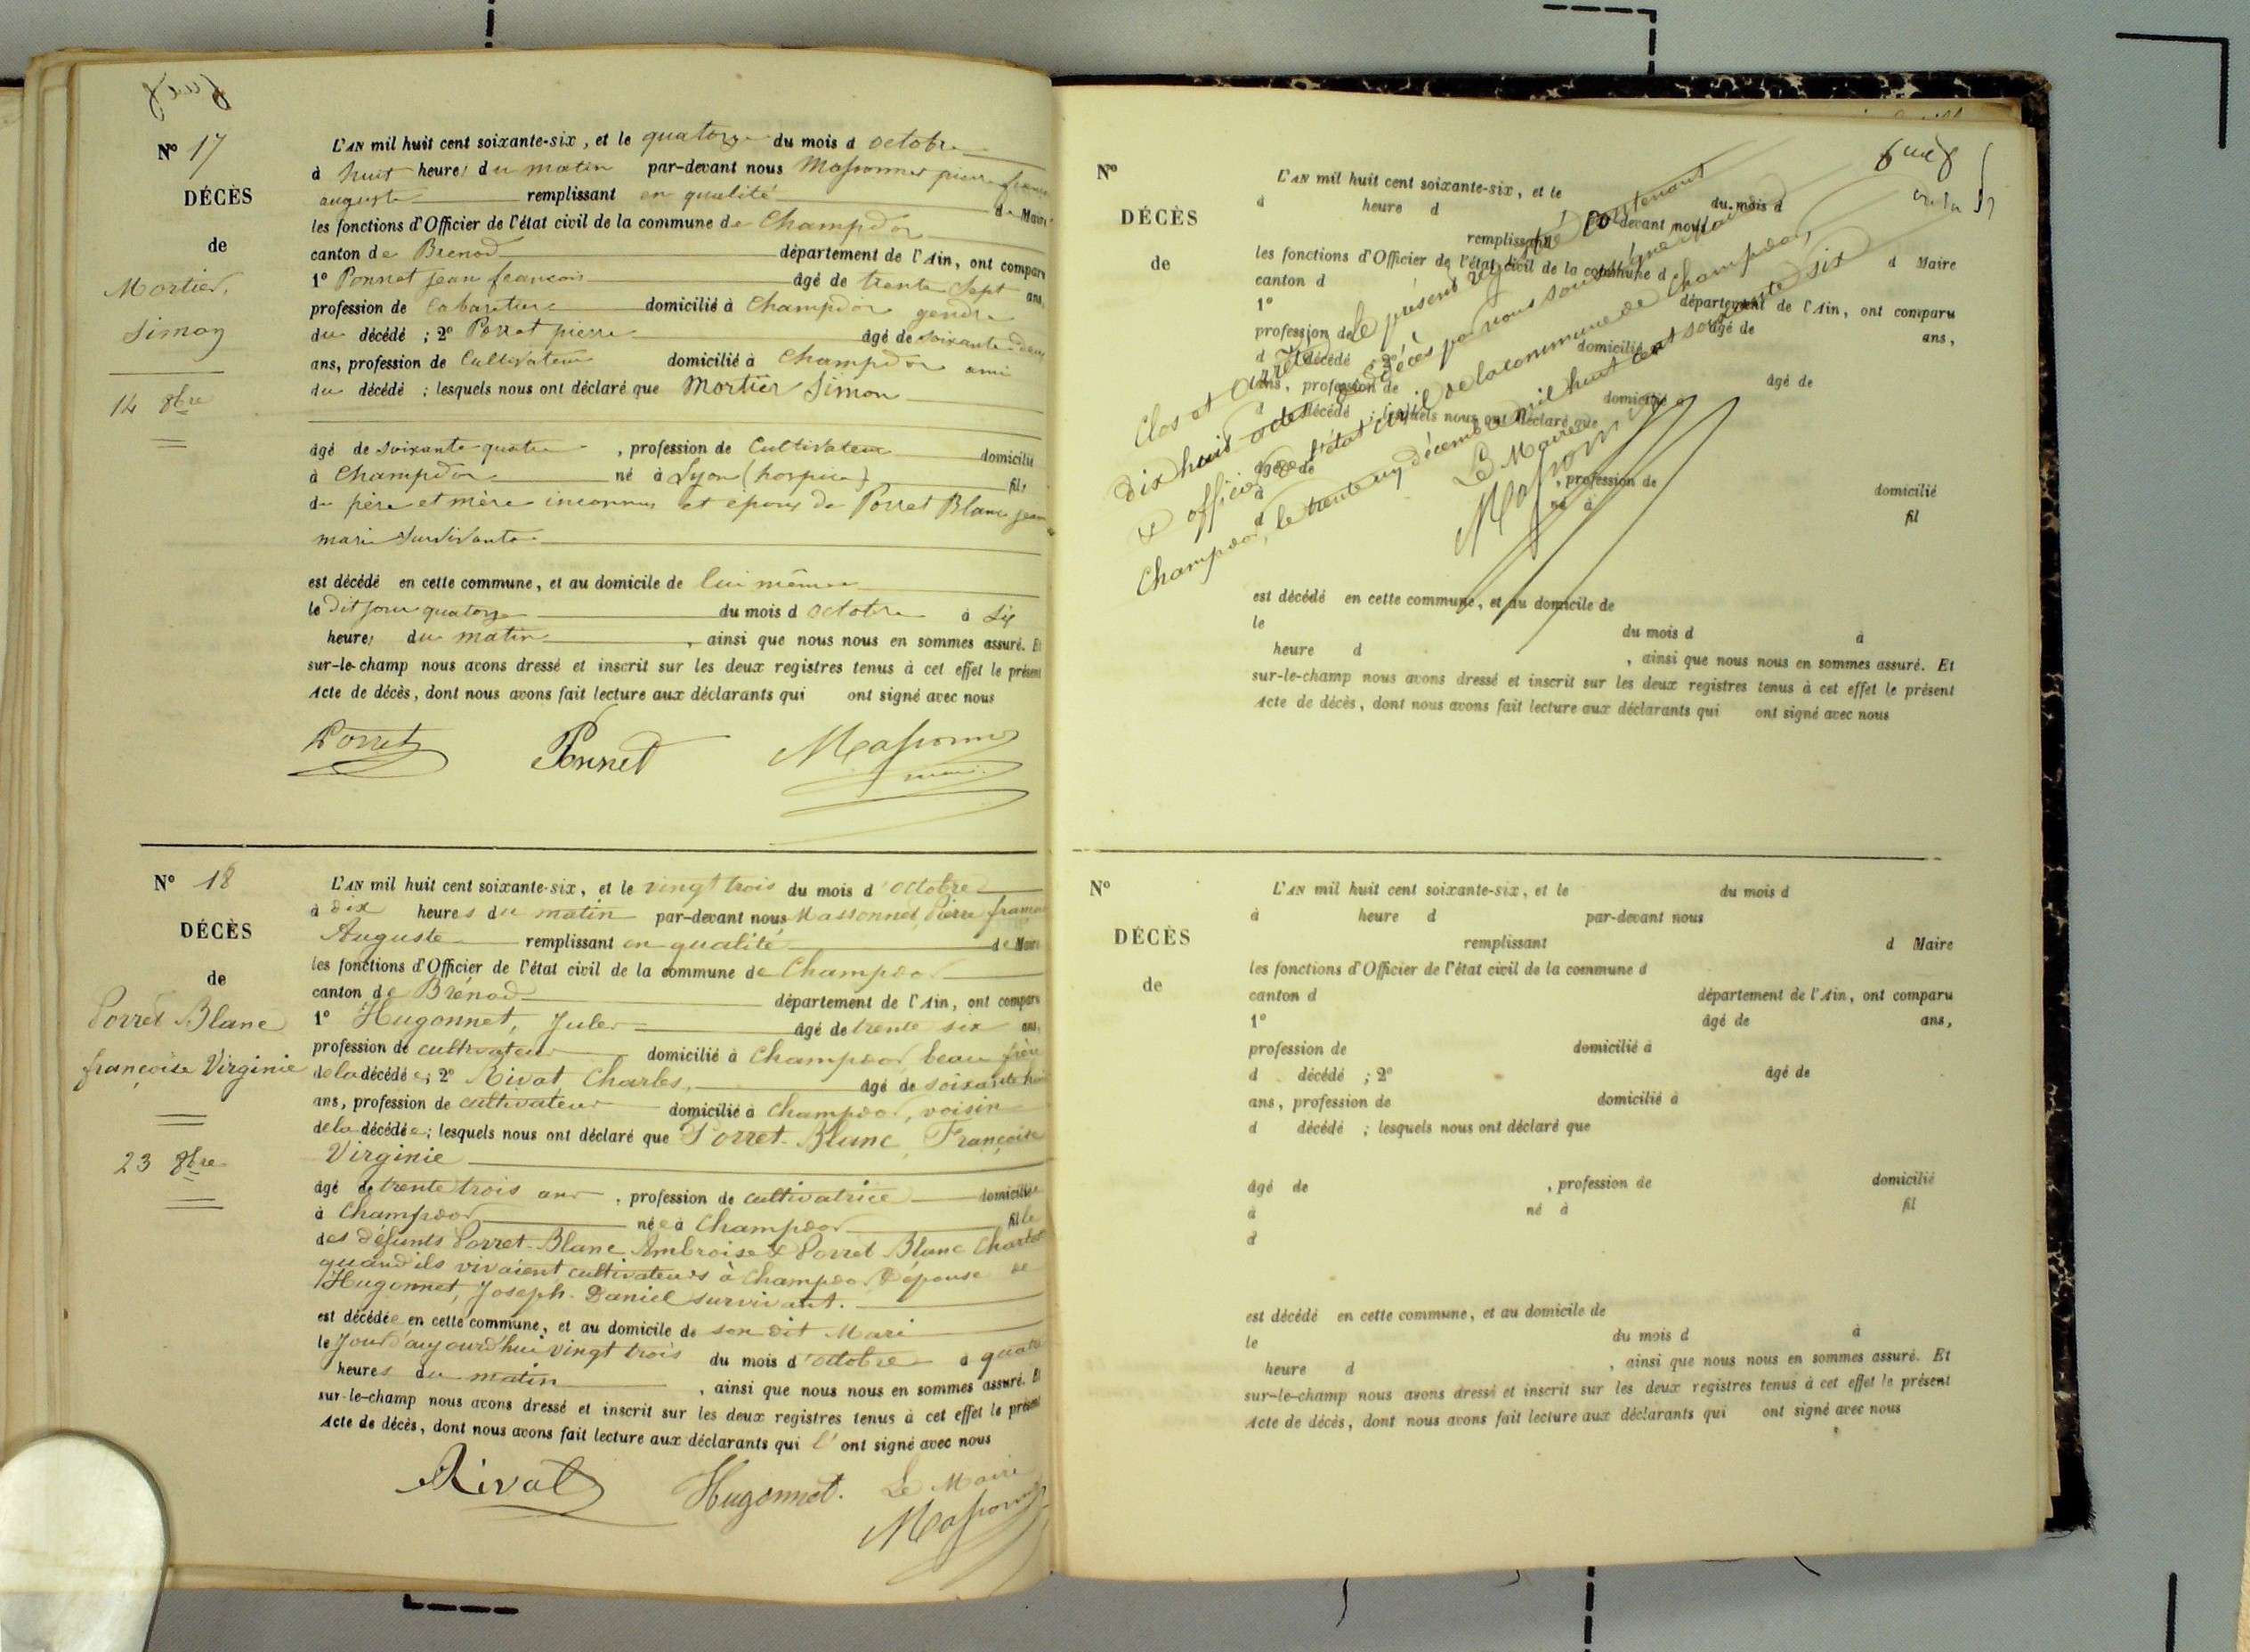 N° 17
DÉCÈS
de
Mortier
Simon
14 8bre
L'AN mil huit cent soixante-six, et le quatorze du mois d octobre
à huit heures du matin par-devant nous Massonnet pierre
auguste remplissant en qualité de Maire
les fonctions d'Officier de l'état civil de la commune de Champdor
canton de Brenod département de l'Ain, ont comparu
1° Ponnet jean francois âgé de trente Sept ans
profession de Cabaretier domicilié à Champdor gendre
du décédé ; 2° Porret pierre âgé de soixante deux
ans, profession de Cultivateur domicilié à Champdor ami
du décédé ; lesquels nous ont déclaré que Mortier Simon
âgé de soixante quatre , profession de Cultivateur domicilié
à Champdor né à Lyon (hospice) fils
de père et mère inconnus et epoux de Porret Blanc
marie survivante
est décédé en cette commune, et au domicile de lui même
le dit jour quatorze du mois d octobre à six
heures du matin , ainsi que nous nous en sommes assuré. Et
sur-le-champ nous avons dressé et inscrit sur les deux registres tenus à cet effet le présent
Acte de décès, dont nous avons fait lecture aux déclarants qui ont signé avec nous
Porret Ponnet Massonnet
N° 18
DÉCÈS
de
Porret Blanc
françoise Virginie
23 8bre
L'AN mil huit cent soixante-six, et le vingt trois du mois d'octobre
à dix heures du matin par-devant nous Massonnet Pierre
Auguste remplissant en qualité de Maire
les fonctions d'Officier de l'état civil de la commune de Champdor
canton de Brénod département de l'Ain, ont comparu
1° Hugonnet, Jules âgé de trente six ans,
profession de cultivateur domicilié à Champdor, beau frère
de la décédée; 2° Rivat Charles, âgé de soixante huit
ans, profession de cultivateur domicilié à Champdor, voisin
de la décédée; lesquels nous ont déclaré que Porret-Blanc, Françoise
Virginie
âgé de trente trois ans , profession de cultivatrice domiciliée
à Champdor née à Champdor fille
des défunts Porret-Blanc Ambroise & Porret Blanc
quand ils vivaient cultivateurs à Champdor & épouse de
Hugonnet, Joseph-Daniel survivant.
est décédée en cette commune, et au domicile de son dit Mari
le jour d'aujourd'hui vingt trois du mois d'octobre à quatre
heures du matin , ainsi que nous nous en sommes assuré. Et
sur-le-champ nous avons dressé et inscrit sur les deux registres tenus à cet effet le présent
Acte de décès, dont nous avons fait lecture aux déclarants qui l' ont signé avec nous
Rivat Hugonnet. Le Maire
Massonnet
N°
DÉCÈS
de
L'AN mil huit cent soixante-six, et le du mois d
à heure d par-devant nous
remplissant d Maire
les fonctions d'Officier de l'état civil de la commune d
canton d département de l'Ain, ont comparu
1° âgé de ans,
profession de domicilié à
d décédé ; 2° âgé de
ans, profession de domicilié à
d décédé ; lesquels nous ont déclaré que
âgé de , profession de domicilié
à né à fil
d
est décédé en cette commune, et au domicile de
le du mois d à
heure d , ainsi que nous nous en sommes assuré. Et
sur-le-champ nous avons dressé et inscrit sur les deux registres tenus à cet effet le présent
Acte de décès, dont nous avons fait lecture aux déclarants qui ont signé avec nous
Clos et arrêté le présent registre contenant
dix huit actes de décès par nous soussigné Maire
& officier de l'état civil de la commune de Champdor,
Champdor, le trente un décembre mil huit cent soixante six
Le Maire
Massonnet
N°
DÉCÈS
de
L'AN mil huit cent soixante-six, et le du mois d
à heure d par-devant nous
remplissant d Maire
les fonctions d'Officier de l'état civil de la commune d
canton d département de l'Ain, ont comparu
1° âgé de ans,
profession de domicilié à
d décédé ; 2° âgé de
ans, profession de domicilié à
d décédé ; lesquels nous ont déclaré que
âgé de , profession de domicilié
à né à fil
d
est décédé en cette commune, et au domicile de
le du mois d à
heure d , ainsi que nous nous en sommes assuré. Et
sur-le-champ nous avons dressé et inscrit sur les deux registres tenus à cet effet le présent
Acte de décès, dont nous avons fait lecture aux déclarants qui ont signé avec nous